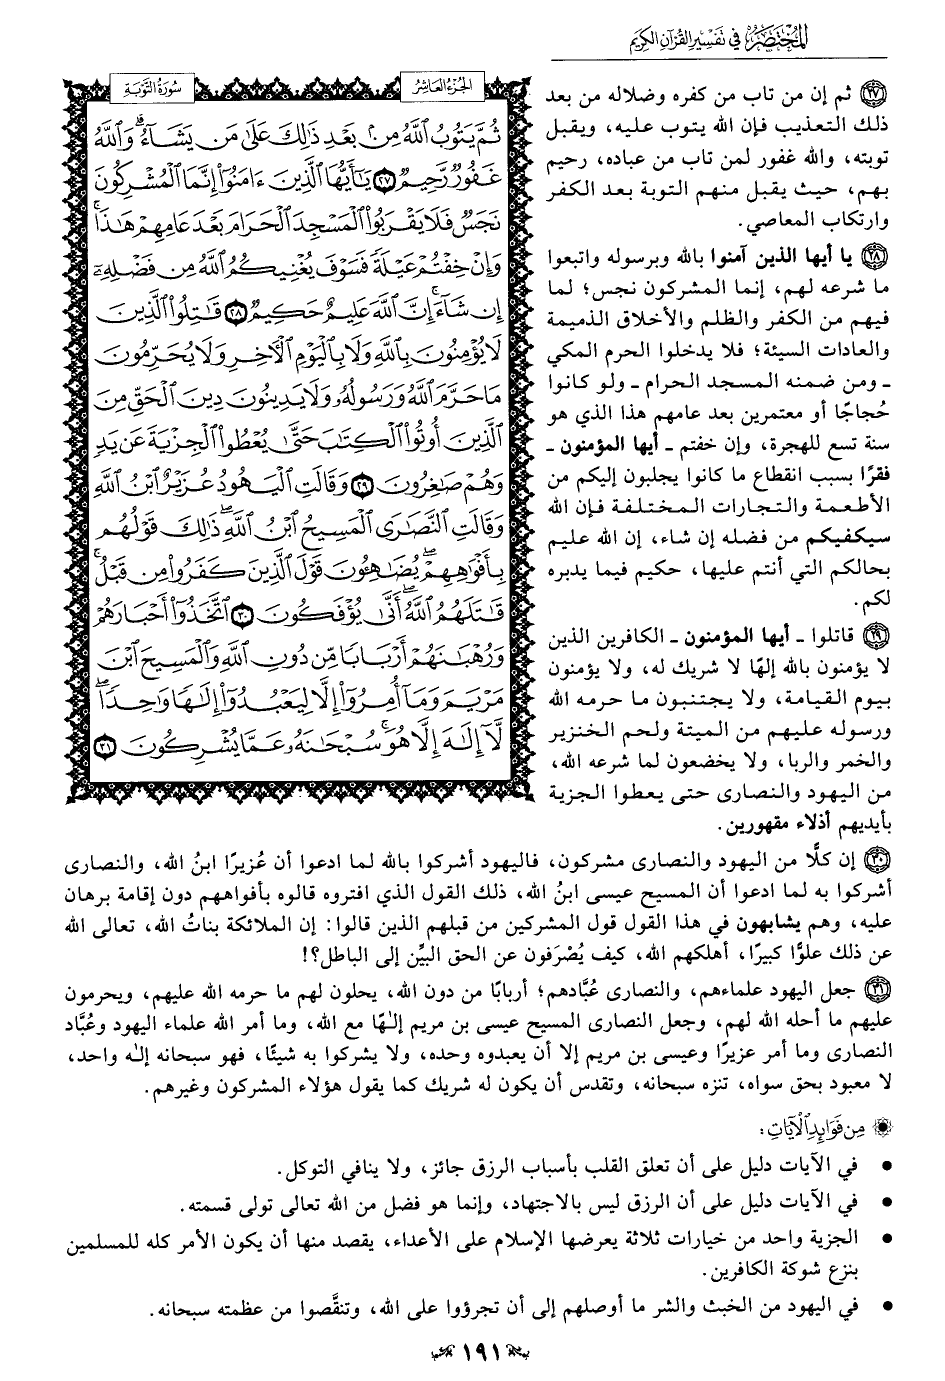 المختصر في تفسير القرآن الكريم
الجزء العاشر
سورة التوبة
ثُمَّ يَتُوبُ ٱللَّهُ مِنۢ بَعْدِ ذَٰلِكَ عَلَىٰ مَن يَشَآءُۗ وَٱللَّهُ
غَفُورٌ رَّحِيمٌ ٢٧ يَٰٓأَيُّهَا ٱلَّذِينَ ءَامَنُوٓاْ إِنَّمَا ٱلْمُشْرِكُونَ
نَجَسٌ فَلَا يَقْرَبُواْ ٱلْمَسْجِدَ ٱلْحَرَامَ بَعْدَ عَامِهِمْ هَٰذَاۚ
وَإِنْ خِفْتُمْ عَيْلَةً فَسَوْفَ يُغْنِيكُمُ ٱللَّهُ مِن فَضْلِهِۦٓ
إِن شَآءَۚ إِنَّ ٱللَّهَ عَلِيمٌ حَكِيمٌ ٢٨ قَٰتِلُواْ ٱلَّذِينَ
لَا يُؤْمِنُونَ بِٱللَّهِ وَلَا بِٱلْيَوْمِ ٱلْأٓخِرِ وَلَا يُحَرِّمُونَ
مَا حَرَّمَ ٱللَّهُ وَرَسُولُهُۥ وَلَا يَدِينُونَ دِينَ ٱلْحَقِّ مِنَ
ٱلَّذِينَ أُوتُواْ ٱلْكِتَٰبَ حَتَّىٰ يُعْطُواْ ٱلْجِزْيَةَ عَن يَدٍ
وَهُمْ صَٰغِرُونَ ٢٩ وَقَالَتِ ٱلْيَهُودُ عُزَيْرٌ ٱبْنُ ٱللَّهِ
وَقَالَتِ ٱلنَّصَٰرَى ٱلْمَسِيحُ ٱبْنُ ٱللَّهِۖ ذَٰلِكَ قَوْلُهُم
بِأَفْوَٰهِهِمْۖ يُضَٰهِـُٔونَ قَوْلَ ٱلَّذِينَ كَفَرُواْ مِن قَبْلُۚ
قَٰتَلَهُمُ ٱللَّهُۖ أَنَّىٰ يُؤْفَكُونَ ٣٠ ٱتَّخَذُوٓاْ أَحْبَارَهُمْ
وَرُهْبَٰنَهُمْ أَرْبَابًا مِّن دُونِ ٱللَّهِ وَٱلْمَسِيحَ ٱبْنَ
مَرْيَمَ وَمَآ أُمِرُوٓاْ إِلَّا لِيَعْبُدُوٓاْ إِلَٰهًا وَٰحِدًاۖ
لَّآ إِلَٰهَ إِلَّا هُوَۚ سُبْحَٰنَهُۥ عَمَّا يُشْرِكُونَ ٣١
٢٧ ثم إن من تاب من كفره وضلاله من بعد
ذلك التعذيب فإن الله يتوب عليه، ويقبل
توبته، والله غفور لمن تاب من عباده، رحيم
بهم، حيث يقبل منهم التوبة بعد الكفر
وارتكاب المعاصي.
٢٨ يا أيها الذين آمنوا بالله وبرسوله واتبعوا
ما شرعه لهم، إنما المشركون نجس؛ لما
فيهم من الكفر والظلم والأخلاق الذميمة
والعادات السيئة؛ فلا يدخلوا الحرم المكي
ـ ومن ضمنه المسجد الحرام ـ ولو كانوا
حُجاجًا أو معتمرين بعد عامهم هذا الذي هو
سنة تسع للهجرة، وإن خفتم ـ أيها المؤمنون ـ
فقرًا بسبب انقطاع ما كانوا يجلبون إليكم من
الأطعمة والتجارات المختلفة فإن الله
سيكفيكم من فضله إن شاء، إن الله عليم
بحالكم التي أنتم عليها، حكيم فيما يدبره
لكم.
٢٩ قاتلوا ـ أيها المؤمنون ـ الكافرين الذين
لا يؤمنون بالله إلهًا لا شريك له، ولا يؤمنون
بيوم القيامة، ولا يجتنبون ما حرمه الله
ورسوله عليهم من الميتة ولحم الخنزير
والخمر والربا، ولا يخضعون لما شرعه الله،
من اليهود والنصارى حتى يعطوا الجزية
بأيديهم أذلاء مقهورين.
٣٠ إن كلًّا من اليهود والنصارى مشركون، فاليهود أشركوا بالله لما ادعوا أن عُزيرًا ابنُ الله، والنصارى
أشركوا به لما ادعوا أن المسيح عيسى ابنُ الله، ذلك القول الذي افتروه قالوه بأفواههم دون إقامة برهان
عليه، وهم يشابهون في هذا القول قول المشركين من قبلهم الذين قالوا: إن الملائكة بناتُ الله، تعالى الله
عن ذلك علوًّا كبيرًا، أهلكهم الله، كيف يُصْرَفون عن الحق البيِّن إلى الباطل؟!
٣١ جعل اليهود علماءهم، والنصارى عُبَّادهم؛ أربابًا من دون الله، يحلون لهم ما حرمه الله عليهم، ويحرمون
عليهم ما أحله الله لهم، وجعل النصارى المسيح عيسى بن مريم إلٰهًا مع الله، وما أمر الله علماء اليهود وعُبَّاد
النصارى وما أمر عزيرًا وعيسى بن مريم إلا أن يعبدوه وحده، ولا يشركوا به شيئًا، فهو سبحانه إلٰه واحد،
لا معبود بحق سواه، تنزه سبحانه، وتقدس أن يكون له شريك كما يقول هؤلاء المشركون وغيرهم.
من فوائد الآيات:
• في الآيات دليل على أن تعلق القلب بأسباب الرزق جائز، ولا ينافي التوكل.
• في الآيات دليل على أن الرزق ليس بالاجتهاد، وإنما هو فضل من الله تعالى تولى قسمته.
• الجزية واحد من خيارات ثلاثة يعرضها الإسلام على الأعداء، يقصد منها أن يكون الأمر كله للمسلمين
بنزع شوكة الكافرين.
• في اليهود من الخبث والشر ما أوصلهم إلى أن تجرؤوا على الله، وتنقَّصوا من عظمته سبحانه.
١٩١